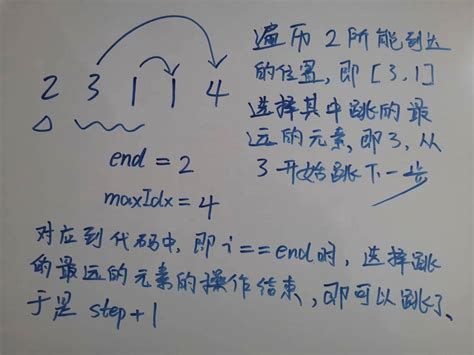 遍历2所能到达
的位置,即[3,1]
选择其中跳的最
远的元素,即3,从
3开始跳下一步
2 3 1 1 4
end = 2
maxIdx = 4
对应到代码中,即i==end时,选择跳
的最远的元素的操作结束,即可以跳了、
于是 step+1